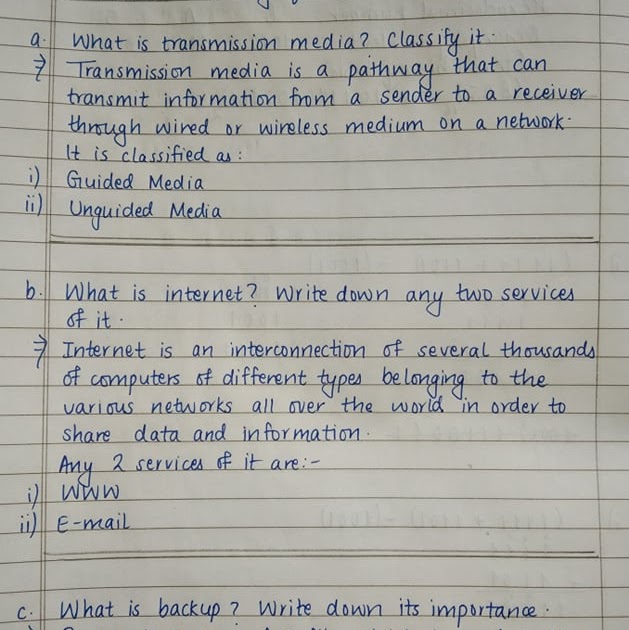 a. What is transmission media? Classify it.
⇒ Transmission media is a pathway that can
transmit information from a sender to a receiver
through wired or wireless medium on a network.
It is classified as :
i) Guided Media
ii) Unguided Media
b. What is internet? Write down any two services
of it.
⇒ Internet is an interconnection of several thousands
of computers of different types belonging to the
various networks all over the world in order to
share data and information.
Any 2 services of it are:-
i) WWW
ii) E-mail
c. What is backup? Write down its importance.